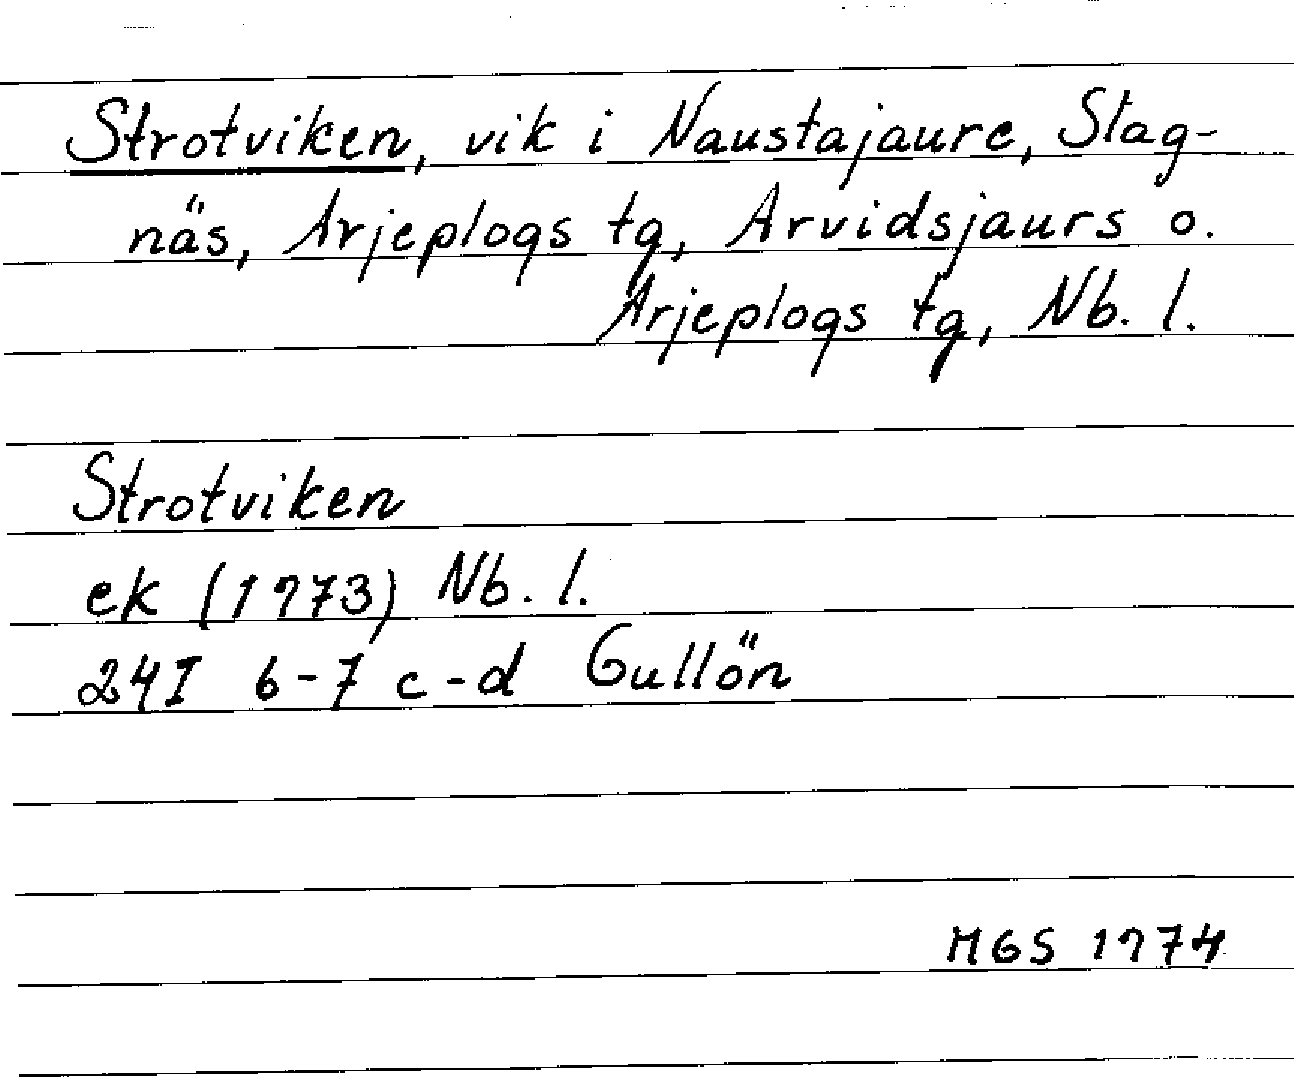 Strotviken, vik i Naustajaure, Slag-
näs, Arjeplogs tg, Arvidsjaurs o.
Arjeplogs tg, Nb. l.
Strotviken
ek (1973) Nb. l.
24I 6-7 c-d Gullön
MGS 1974